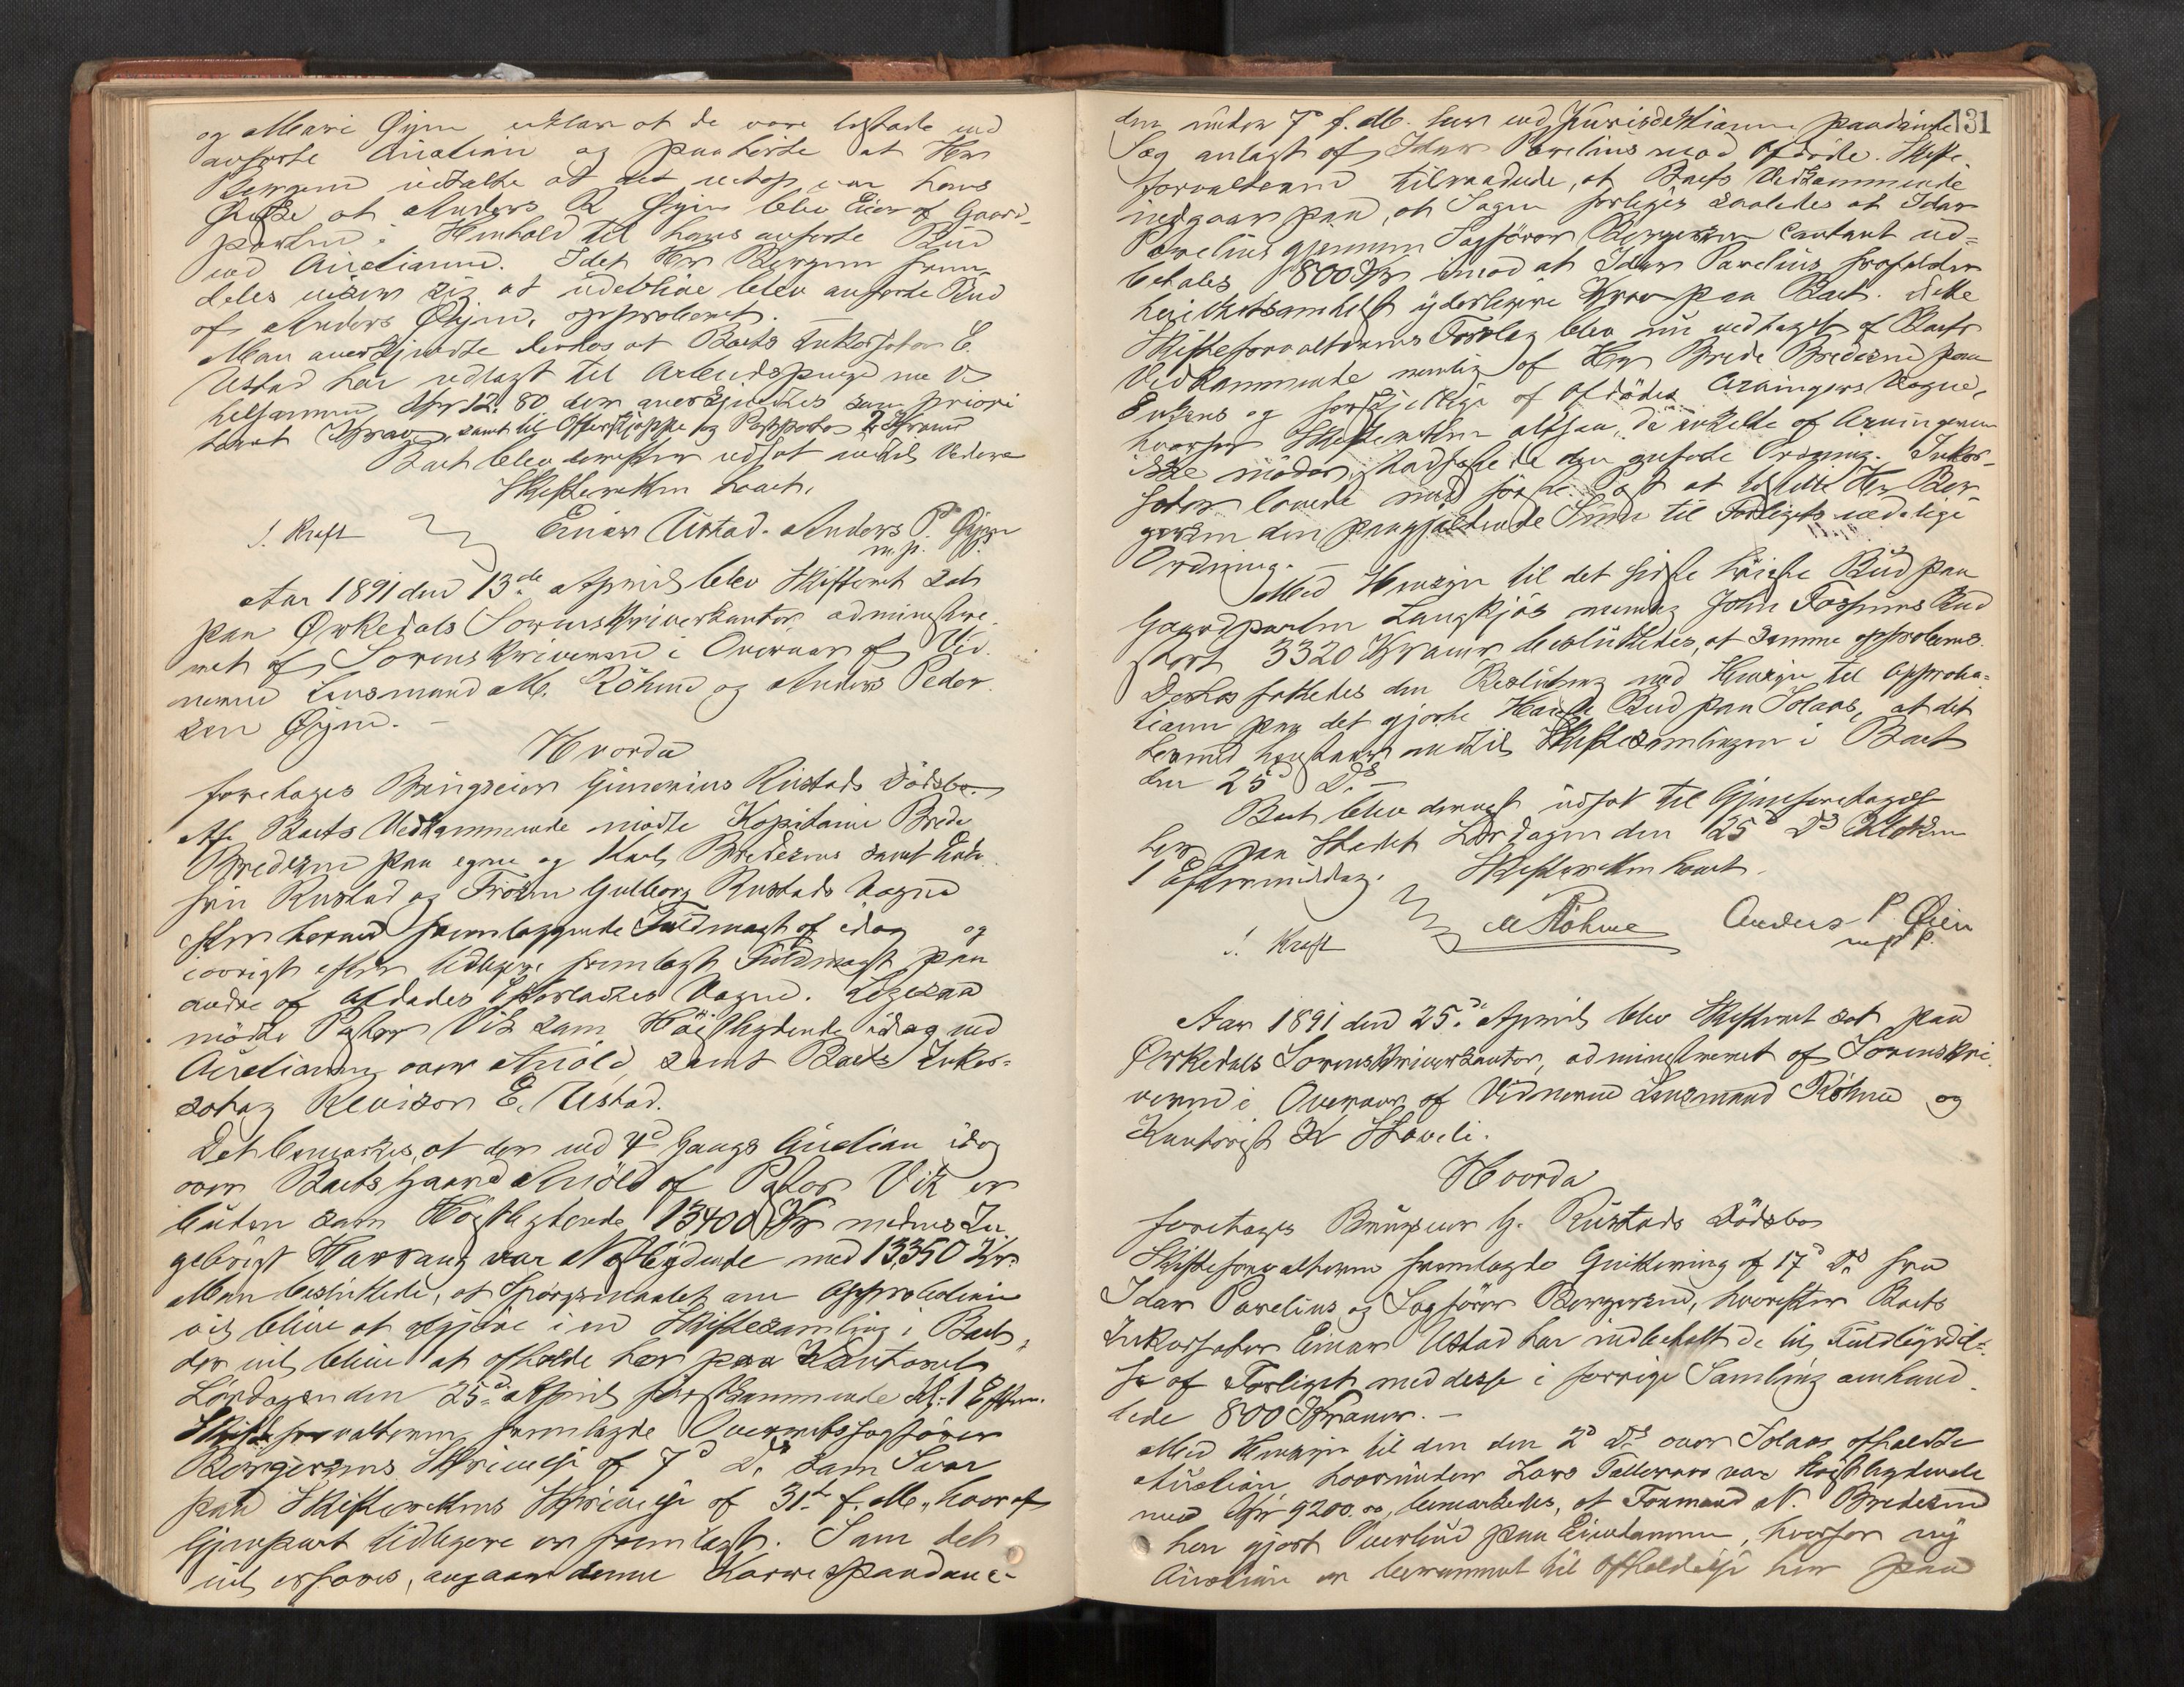 og Marie Øyen erklær at de vare bestade ved
anførte Auction og paaherte at Hr
Bergem udtalte at det netop var hans
Ønske at Anders P. Øyen blev Eier af Gaard-
parten i Henhold til hans anførte Bud
ved Auctionen. Idet Hr Bergem frem-
deles viser sig at udeblive blev anførte Bud
af Anders Øyen, approberet.
Man anerkjendte derhos at Boets Inkassator E.
Ustad har udlagt til Arbeidspenge m. V.
tilsammen Kr 12. 80 der anerkjendtes som priori
tært Krav, samt til og 2 Kroner
Boet blev derefter udsat indtil Videre
Skifteretten hævet.
J. Kraft Einar Ustad. Anders P. Øyen
m. p. P.
Aar 1891 den 13de April blev Skifteret sat
paa Ørkedals Sorenskriverkontor, administre-
ret af Sorenskriveren i Overvær af Vid-
nerne Lensmand M. Röhme og Anders Peder-
sen Øyen. –
Hvorda
foretoges Brugseier Gunerius Rustads Dödsbo.
Af Boets Vedkommende mödte Kapitaine Brede
Bredesen paa egne og Karl Bredesens samt Enke-
fru Rustad og Fröken Gulborg Rustads Vegne
efter herved fremlæggende Fuldmagt af idag og
iövrigt efter tidligere fremlagt Fuldmagt paa
andre af Afdödes Efterladtes Vegne. Ligesaa
mödte Pastor Vik som Höistbydende idag ved
Auctionen over Miöld, samt Boets Inkas-
sator Revisor E. Ustad.
Det bemærkes, at der ved 4d Gangs Auction idag
over Boets Gaard Miöld af Pastor Vik er
buden som Höistbydende 13400 Kr medens In-
gebrigt Harvang var Næstbydende med 13,350 Kr.
Man besluttede, at Spörgsmaalet om Approbation
vil blive at afgjöre i en Skiftesamling i Boet,
der vil blive at afholde her paa Kontoret
Lördagen den 25de April förstkommende Kl: 1 Efterm.
Skifteforvalteren fremlagde Overretssagförer
Bergersens Skrivelse af 7d Ds. som Svar
paa Skifterettens Skrivelse af 31te f. M., hvoraf
Gjenpart tidligere er fremlagt. Som det
vil erfares, angaar denne Korrespondance
131
den under 7d f. M. her ved Jurisdiktionen paadömte
Sag anlagt af Idar Parelius mod Afdöde. Skifte-
forvalteren tilraadede, at Boets Vedkommende
indgaar paa, at Sagen forliges saaledes at Idar
Parelius gjennem Sagförer Bergersen contant ud-
betales 800 Kr imod at Idar Parelius frafalder
hvilketsomhelst yderligere Krav paa Boet. dette
Skifteforvalterens Forslag blev nu vedtaget af Boets
Vedkommende nemlig af Hr Brede Bredesen paa
Enkens og forskjellige af Afdödes Arvingers Vegne,
hvorfor Skifteretten altsaa, da enkelte af Arvingerne
ikke möder, stadfæstede den anförte Ordning. Inkas-
sator lovede med förste Post at tilstille Hr Ber-
gersen den paagjældende Sum til Forligets endelige
Ordning. –
Med Hensyn til det sidste höieste Bud paa
Gaardparten Langkjös nemlig John Fossems Bud
stort 3320 Kroner besluttedes, at samme approberes.
Derhos fattedes den Beslutning med Hensyn til Approba-
tionen paa det gjorte Höieste Bud paa Solaas, at det
dermed henstaar indtil Skiftesamlingen i Boet
den 25d Ds. –
Boet blev dernæst udsat til Gjenforetagelse
her paa Stedet Lördagen den 25d Ds Klokken
1 Eftermiddag. Skifteretten hævet.
J. Kraft M Röhme Anders P. Øien
m. p. P.
Aar 1891 den 25de April blev Skifteret sat paa
Ørkedals Sorenskriverkontor, administreret af Sorenskri-
veren i Overvær af Vidnerne Lensmand Röhme og
Kontorist K
Hvorda
foretoges Brugseier G. Rustads Dödsbo
Skifteforvalteren fremlagde Qvittering af 17d Ds. fra
Idar Parelius og Sagförer Bergersen, hvorefter Boets
Inkassator Einar Ustad har indbetalt de til Fuldbyrdel-
se af Forliget med desse i forrige Samling omhand-
lede 800 Kroner. –
Med Hensyn til den den 2d Ds. over Solaas afholdte
Auction, hvorunder Lars Talleraas var höistbydende
med Kr 9200.00, bemærkedes, at Formand N. Bredesen
har gjort Overbud paa Eiendommen, hvorfor ny
Auction er berammet til Afholdelse her paa